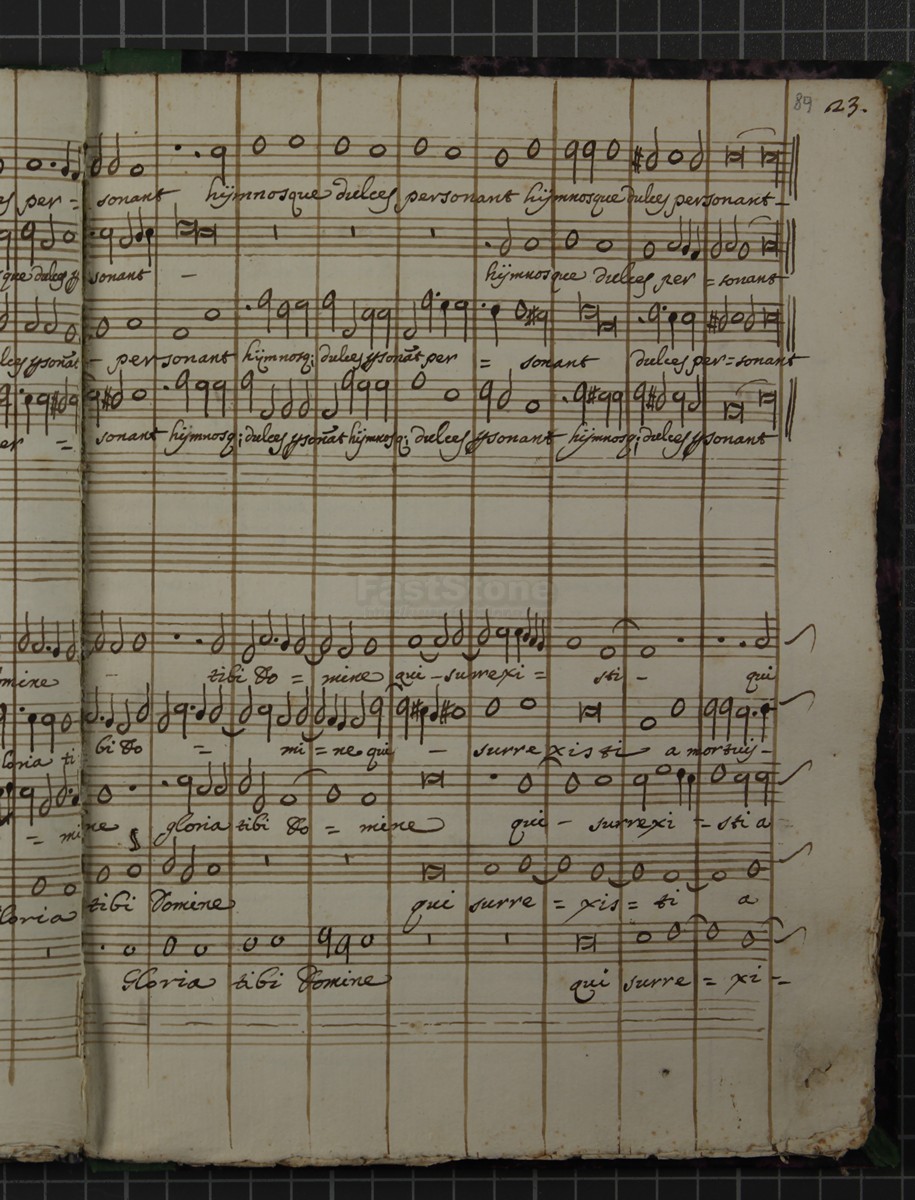 89 23.
per = sonant hÿmnosque dulces personant hÿmnosque dulces personant
sonant hÿmnosque dulces per = sonant
personant hÿmnosq; dulces per = sonant dulces per = sonant
sonant hÿmnosq; dulces hÿmnosq; dulces hÿmnosq; dulces
FastStone
mine tibi Do = mine qui - surrexi = sti - qui
loria ti bi Do = mi = ne qui - surrexisti a mortuÿ -
= mine gloria tibi Do = mine qui - surrexi = sti a
loria tibi Domine qui surre = xis = ti a
Gloria tibi Domine qui surre = xi -